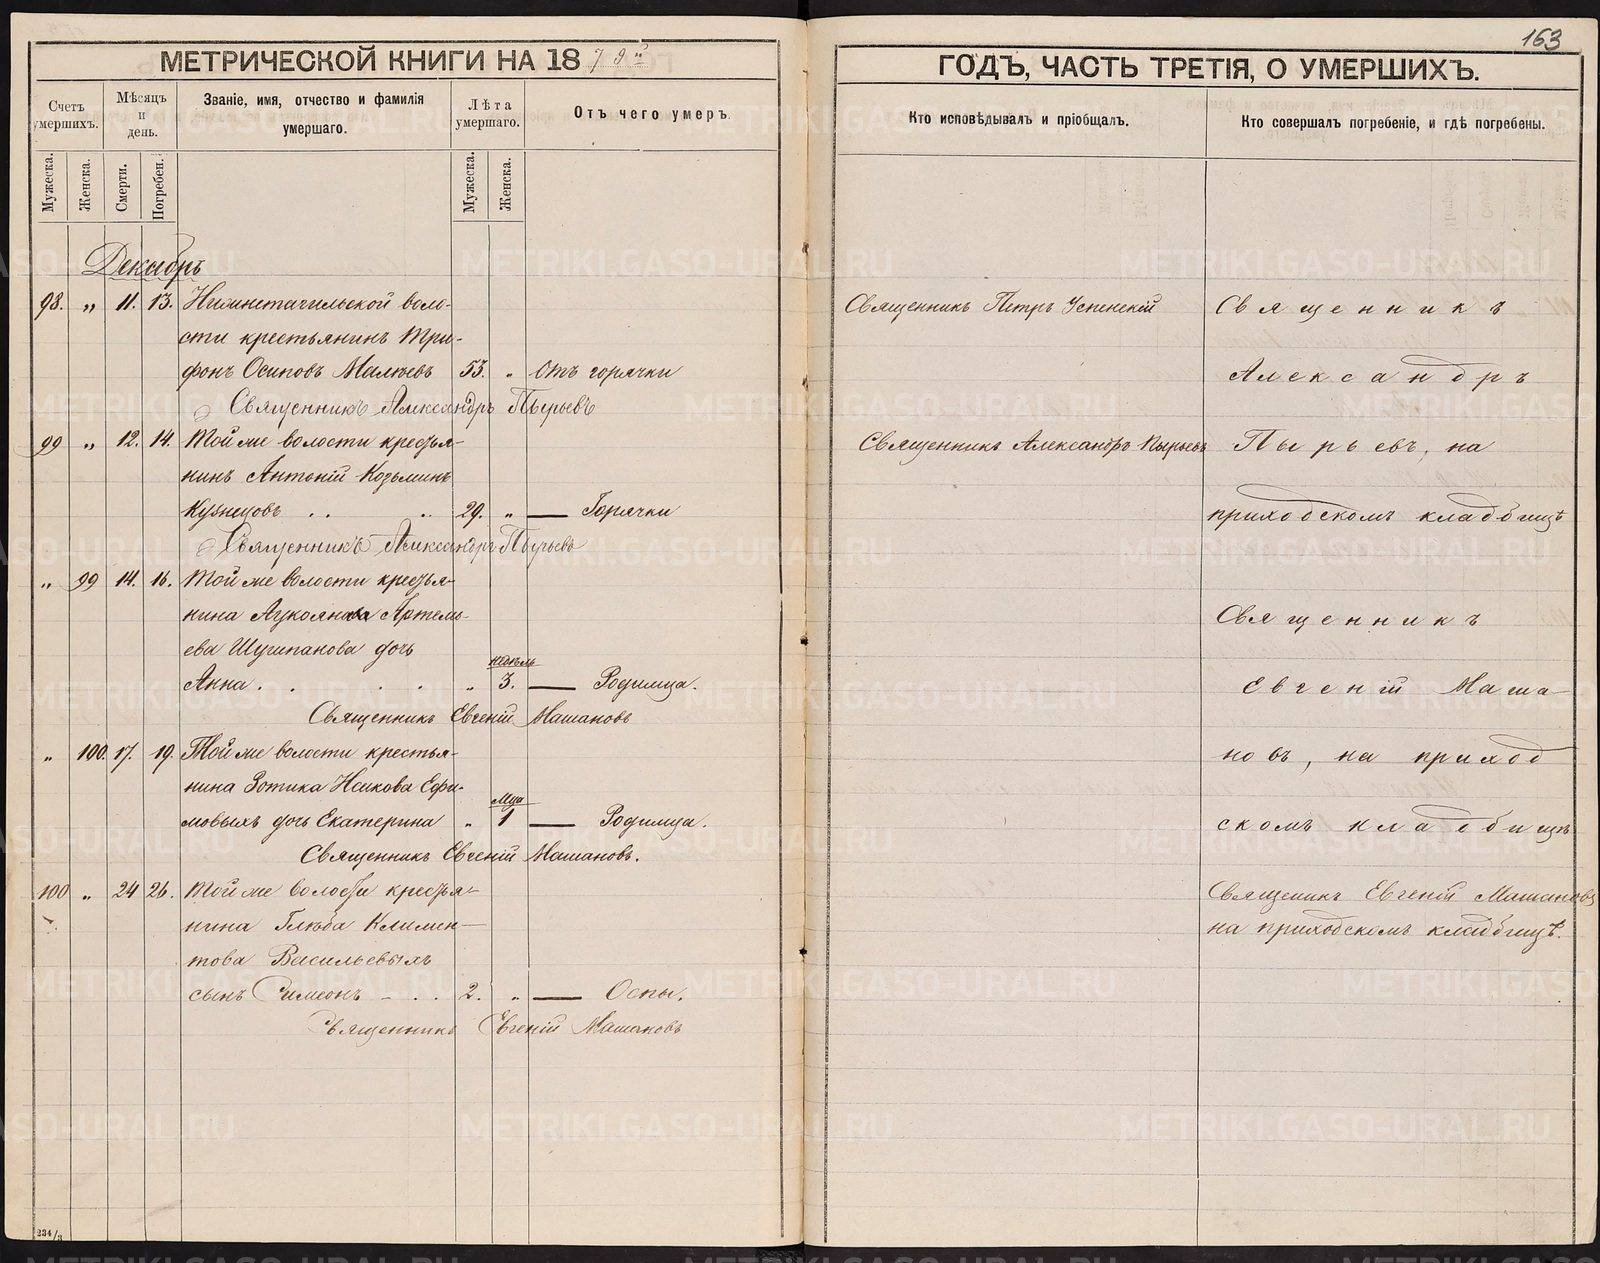 МЕТРИЧЕСКОЙ КНИГИ НА 1879й
Счетъ умершихъ.
Мѣсяцъ и день.
Званіе, имя, отчество и фамилія умершаго.
Лѣта умершаго.
Отъ чего умеръ.
Мужеска.
Женска.
Смерти.
Погребен.
Мужеска.
Женска.
Декабрь
98. „ 11. 13. Нижнетагильской воло-
сти крестьянинъ Три-
фонъ Осиповъ Малѣевъ 53. „ отъ горячки
Священникъ Александръ Пырьевъ
99 „ 12. 14. Той же волости крестья-
нинъ Антоній Козьминъ
Кузнецовъ . . . . 29. „ — Горячки
Священникъ Александръ Пырьевъ
„ 99 14. 16. Той же волости крестья-
нина Артемь-
ева дочь
недѣль
Анна . . . . „ 3. — Родимца.
Священникъ Евгеній Машановъ
„ 100. 17. 19. Той же волости крестья-
нина Зотика Исикова Ефи-
мца
мовыхъ дочь Екатерина „ 1 — Родимца.
Священникъ Евгеній Машановъ.
100 „ 24 26. Той же волости крестья-
нина Глѣба Климен-
това Васильевыхъ
сынъ Симеонъ — . . 2. „ — Оспы.
Священникъ Евгеній Машановъ
234/3
163
ГОДЪ, ЧАСТЬ ТРЕТІЯ, О УМЕРШИХЪ.
Кто исповѣдывалъ и пріобщалъ.
Кто совершалъ погребеніе, и гдѣ погребены.
Священникъ Петръ Успенскій
Священникъ Александръ Пырьевъ
Священникъ
Александръ
Пырьевъ, на
приходскомъ кладбищѣ
Священникъ
Евгеній Маша-
новъ, на приход
скомъ кладбищѣ
Священикъ Евгеній Машановъ
на приходскомъ кладбищѣ.
METRIKI.GASO-URAL.RU